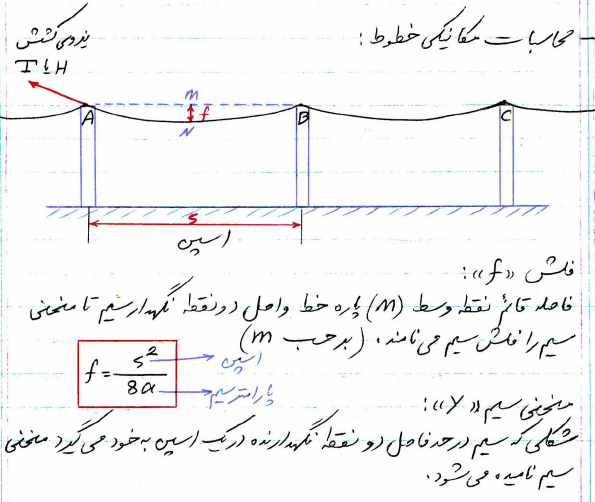 - محاسبات مکانیکی خطوط :
نیروی کشش
H یا T
M
f
N
A
B
C
S
اسپن
فلش «f» :
فاصله قائم نقطه وسط (M) پاره خط واصل دو نقطه نگهدار سیم تا منحنی
سیم را فلش سیم می نامند . (بر حسب m)
f = S²/8a
اسپن
پارامتر سیم
منحنی سیم «y» :
شکلی که سیم در حد فاصل دو نقطه نگهدارنده در یک اسپن به خود می گیرد منحنی
سیم نامیده می شود .